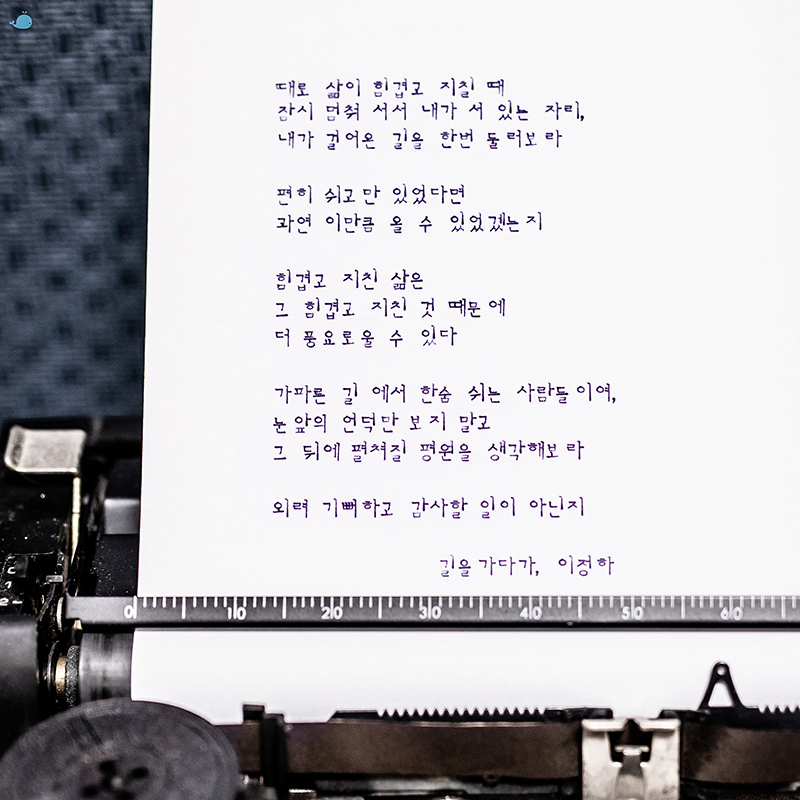 때로 삶이 힘겹고 지칠 때
잠시 멈춰 서서 내가 서 있는 자리,
내가 걸어온 길을 한번 둘러보라
편히 쉬고만 있었다면
과연 이만큼 올 수 있었겠는지
힘겹고 지친 삶은
그 힘겹고 지친 것 때문에
더 풍요로울 수 있다
가파른 길 에서 한숨 쉬는 사람들이여,
눈앞의 언덕만 보지 말고
그 뒤에 펼쳐질 평원을 생각해보라
외려 기뻐하고 감사할 일이 아닌지
길을가다가, 이정하
0 10 20 30 40 50 60